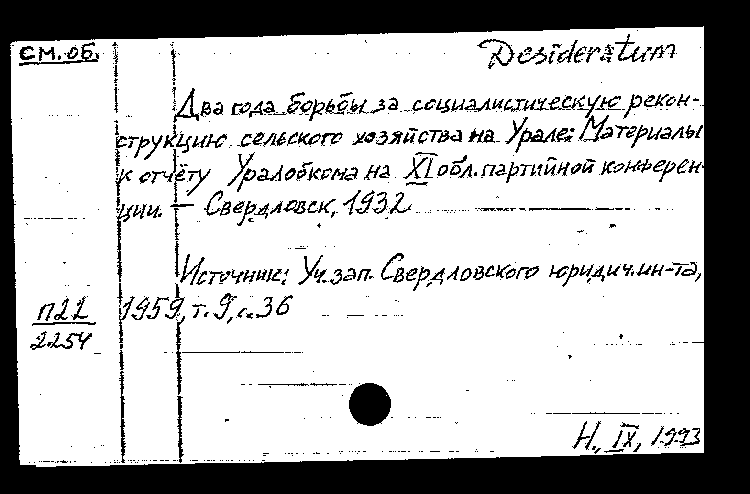 см. об.
Desideratum
Два года борьбы за социалистическую рекон-
струкцию сельского хозяйства на Урале: Материалы
к отчёту Уралобкома на XI обл. партийной конферен-
ции. — Свердловск, 1932
Источник: Уч. зап. Свердловского юридич. ин-та,
1959, т. 9, с. 36
П22
2254
Н., IX, 1993